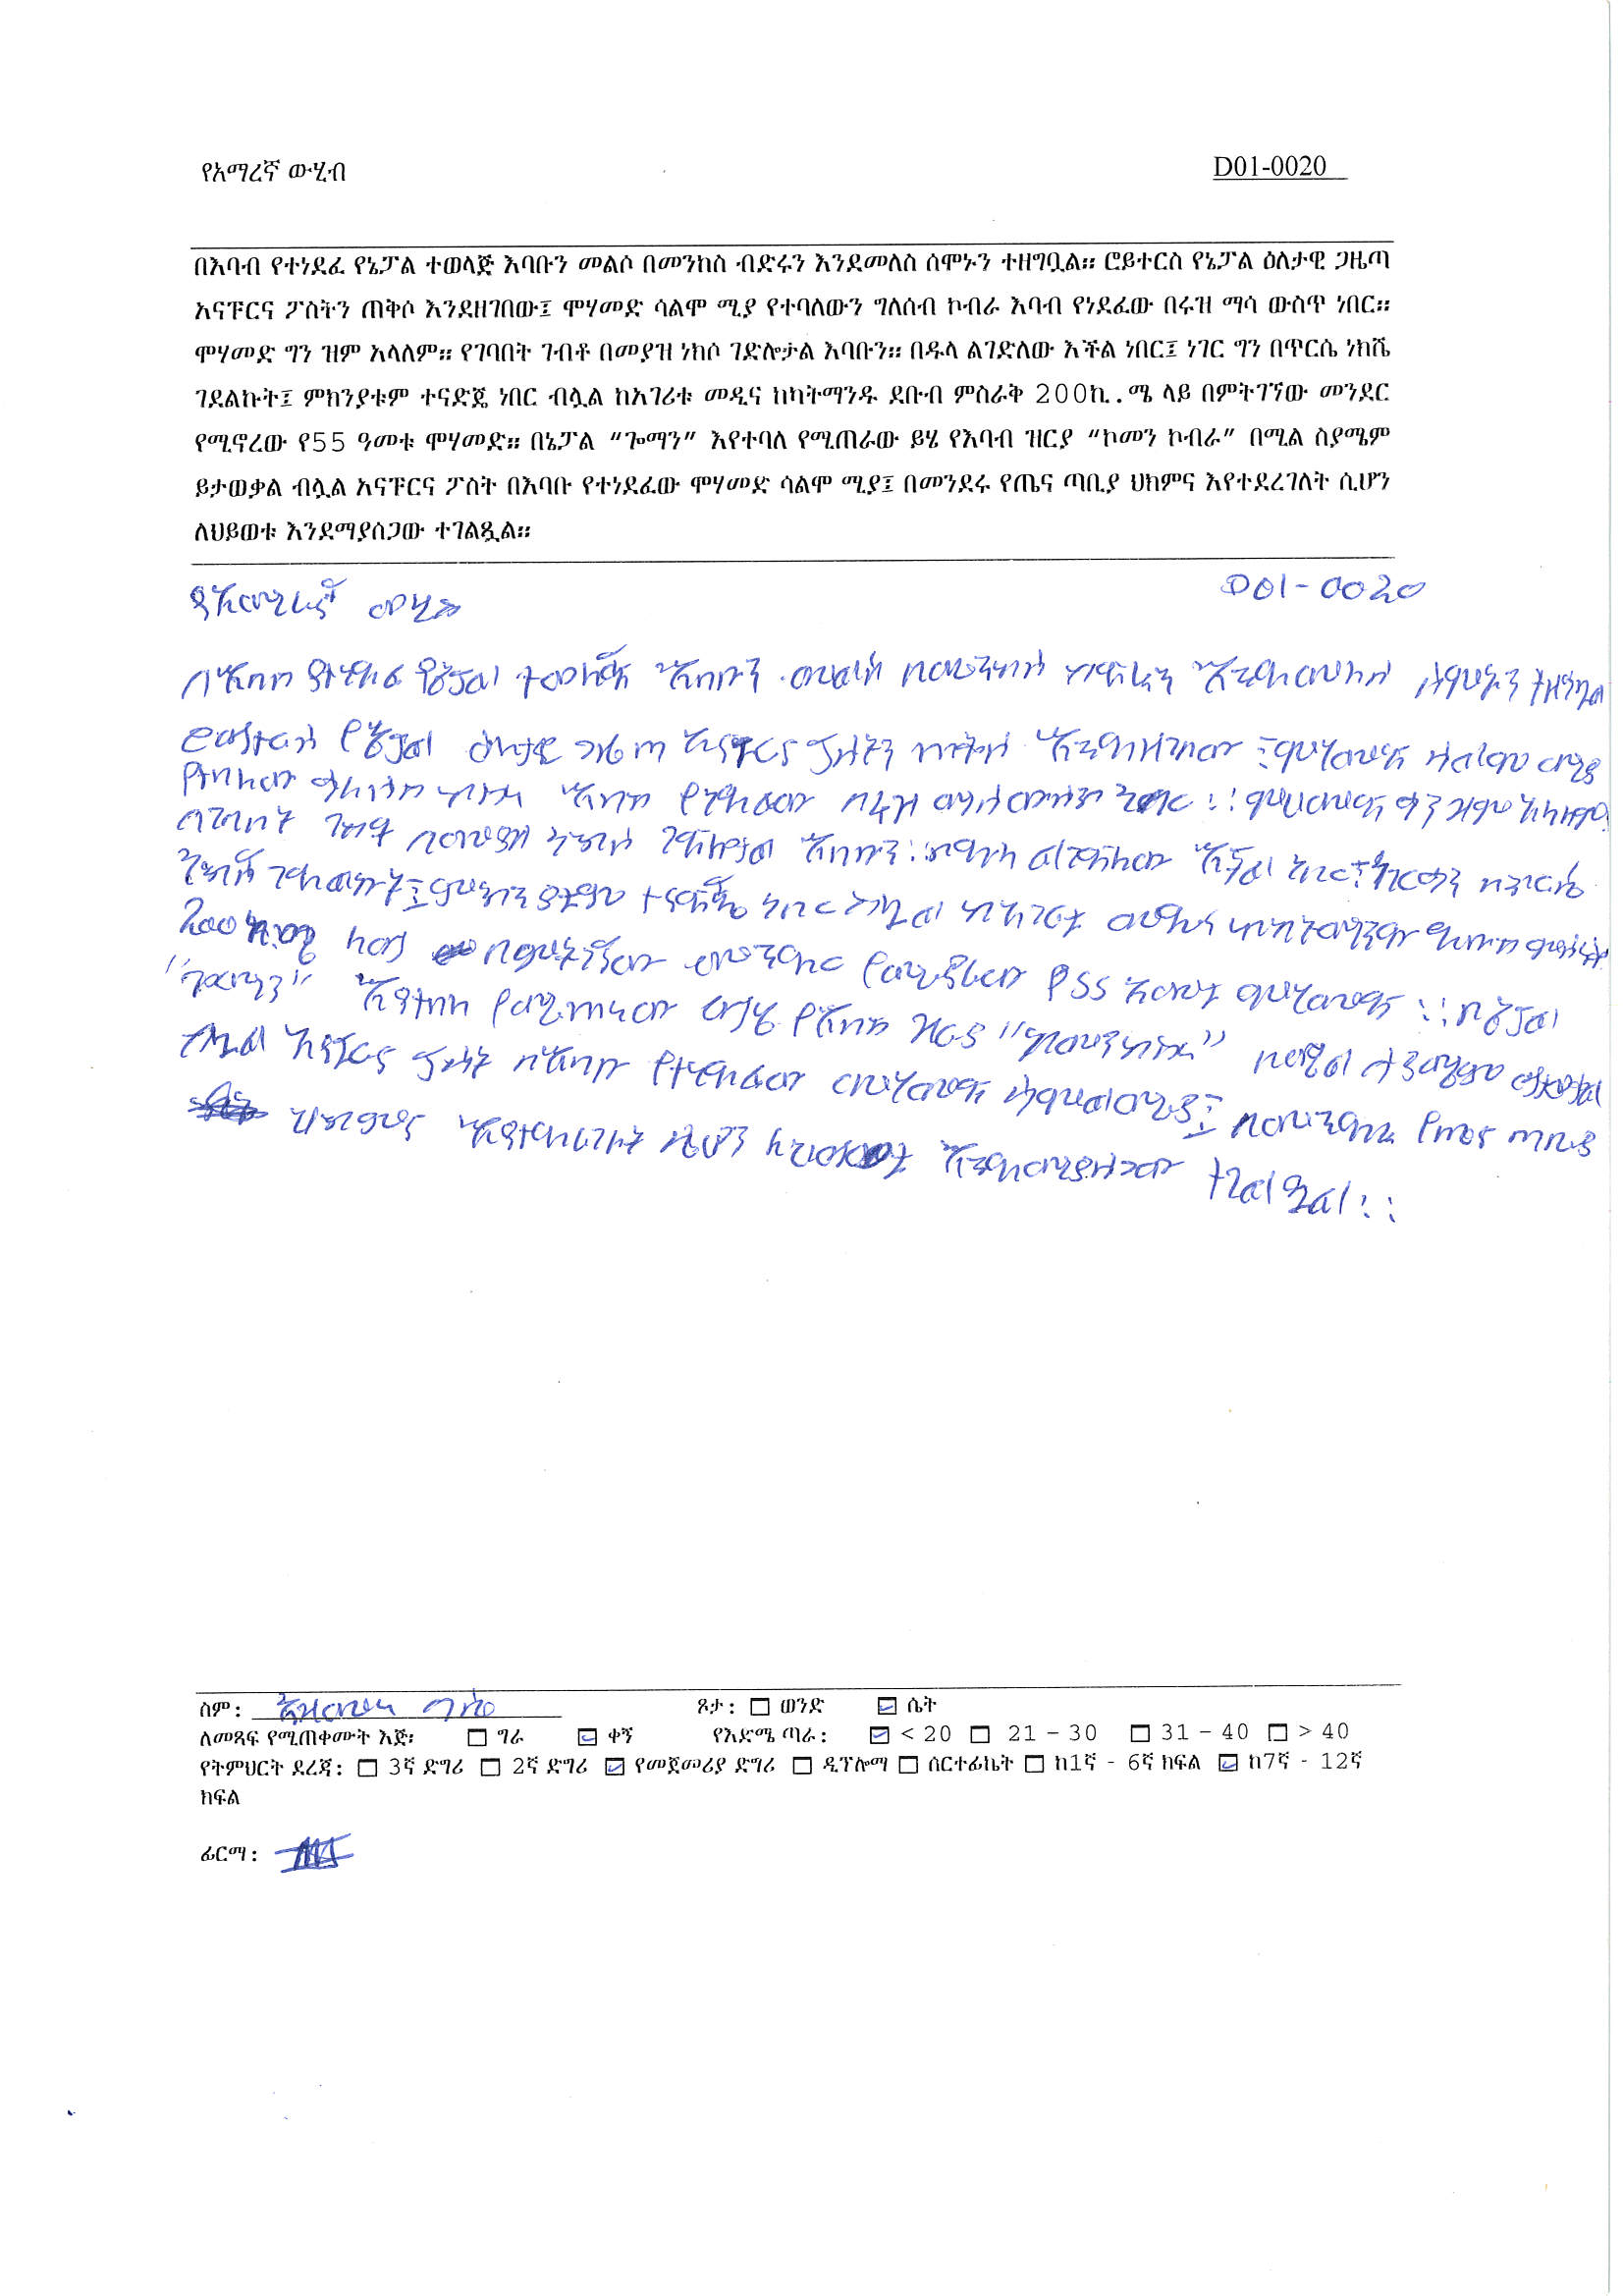 የአማረኛ ውሂብ D01-0020
በእባብ የተነደፈ የኔፓል ተወላጅ እባቡን መልሶ በመንከስ ብድሩን እንደመለስ ሰሞኑን ተዘግቧል። ሮይተርስ የኔፓል ዕለታዊ ጋዜጣ
አናፑርና ፖስትን ጠቅሶ እንደዘገበው፤ ሞሃመድ ሳልሞ ሚያ የተባለውን ግለሰብ ኮብራ እባብ የነደፈው በሩዝ ማሳ ውስጥ ነበር።
ሞሃመድ ግን ዝም አላለም። የገባበት ገብቶ በመያዝ ነክሶ ገድሎታል እባቡን። በዱላ ልገድለው እችል ነበር፤ ነገር ግን በጥርሴ ነክሼ
ገደልኩት፤ ምክንያቱም ተናድጄ ነበር ብሏል ከአገሪቱ መዲና ከካትማንዱ ደቡብ ምስራቅ 200ኪ.ሜ ላይ በምትገኘው መንደር
የሚኖረው የ55 ዓመቱ ሞሃመድ። በኔፓል “ጐማን” እየተባለ የሚጠራው ይሄ የእባብ ዝርያ “ኮመን ኮብራ” በሚል ስያሜም
ይታወቃል ብሏል አናፑርና ፖስት በእባቡ የተነደፈው ሞሃመድ ሳልሞ ሚያ፤ በመንደሩ የጤና ጣቢያ ህክምና እየተደረገለት ሲሆን
ለህይወቱ እንደማያሰጋው ተገልጿል።
የአማረኛ ውሂብ D01-0020
በእባብ የተነደፈ የኔፓል ተወላጅ እባቡን መልሶ በመንከስ ብድሩን እንደመለስ ሰሞኑን ተዘግቧል
ሮይተርስ የኔፓል ዕለታዊ ጋዜጣ አናፑርና ፖስትን ጠቅሶ እንደዘገበው፤ ሞሃመድ ሳልሞ ሚያ
የተባለው ግለሰብ ኮብራ እባብ የነደፈው በሩዝ ማሳ ውስጥ ነበር ።ሞሃመድ ግን ዝም አላለም
በገባበት ገብቶ በመያዝ ነክሶ ገድሎታል እባቡን።በዱላ ልገድለው እችል ነበር፤ ነገር ግን በጥርሴ
ነክሼ ገደልኩት፤ ምክንያቱም ተናድጄ ነበር ብሏል ከአገሪቱ መዲና ከካትማንዱ ደቡብ ምስራቅ
200 ኪ.ሜ ላይ በምትገኘው መንደር የሚኖረው የ55 ዓመቱ ሞሃመድ ።በኔፓል
"ጐማን" እየተባለ የሚጠራው ይሄ የእባብ ዝርያ በሚል ስያሜም ይታወቃል
ብሏል አናፑርና ፖስት በእባቡ የተነደፈው ሞሃመድ ሳልሞ ሚያ፤ በመንደሩ የጤና ጣቢያ
ህክምና እየተደረገለት ሲሆን ለህይወቱ እንደማያሰጋው ተገልጿል።
ስም: ጾታ: ወንድ ሴት
ለመጻፍ የሚጠቀሙት እጅ፡ ግራ ቀኝ የእድሜ ጣራ: < 20 21 – 30 31 – 40 > 40
የትምህርት ደረጃ: 3ኛ ድግሪ 2ኛ ድግሪ የመጀመሪያ ድግሪ ዲፕሎማ ሰርተፊኬት ከ1ኛ - 6ኛ ክፍል ከ7ኛ - 12ኛ
ክፍል
ፊርማ: